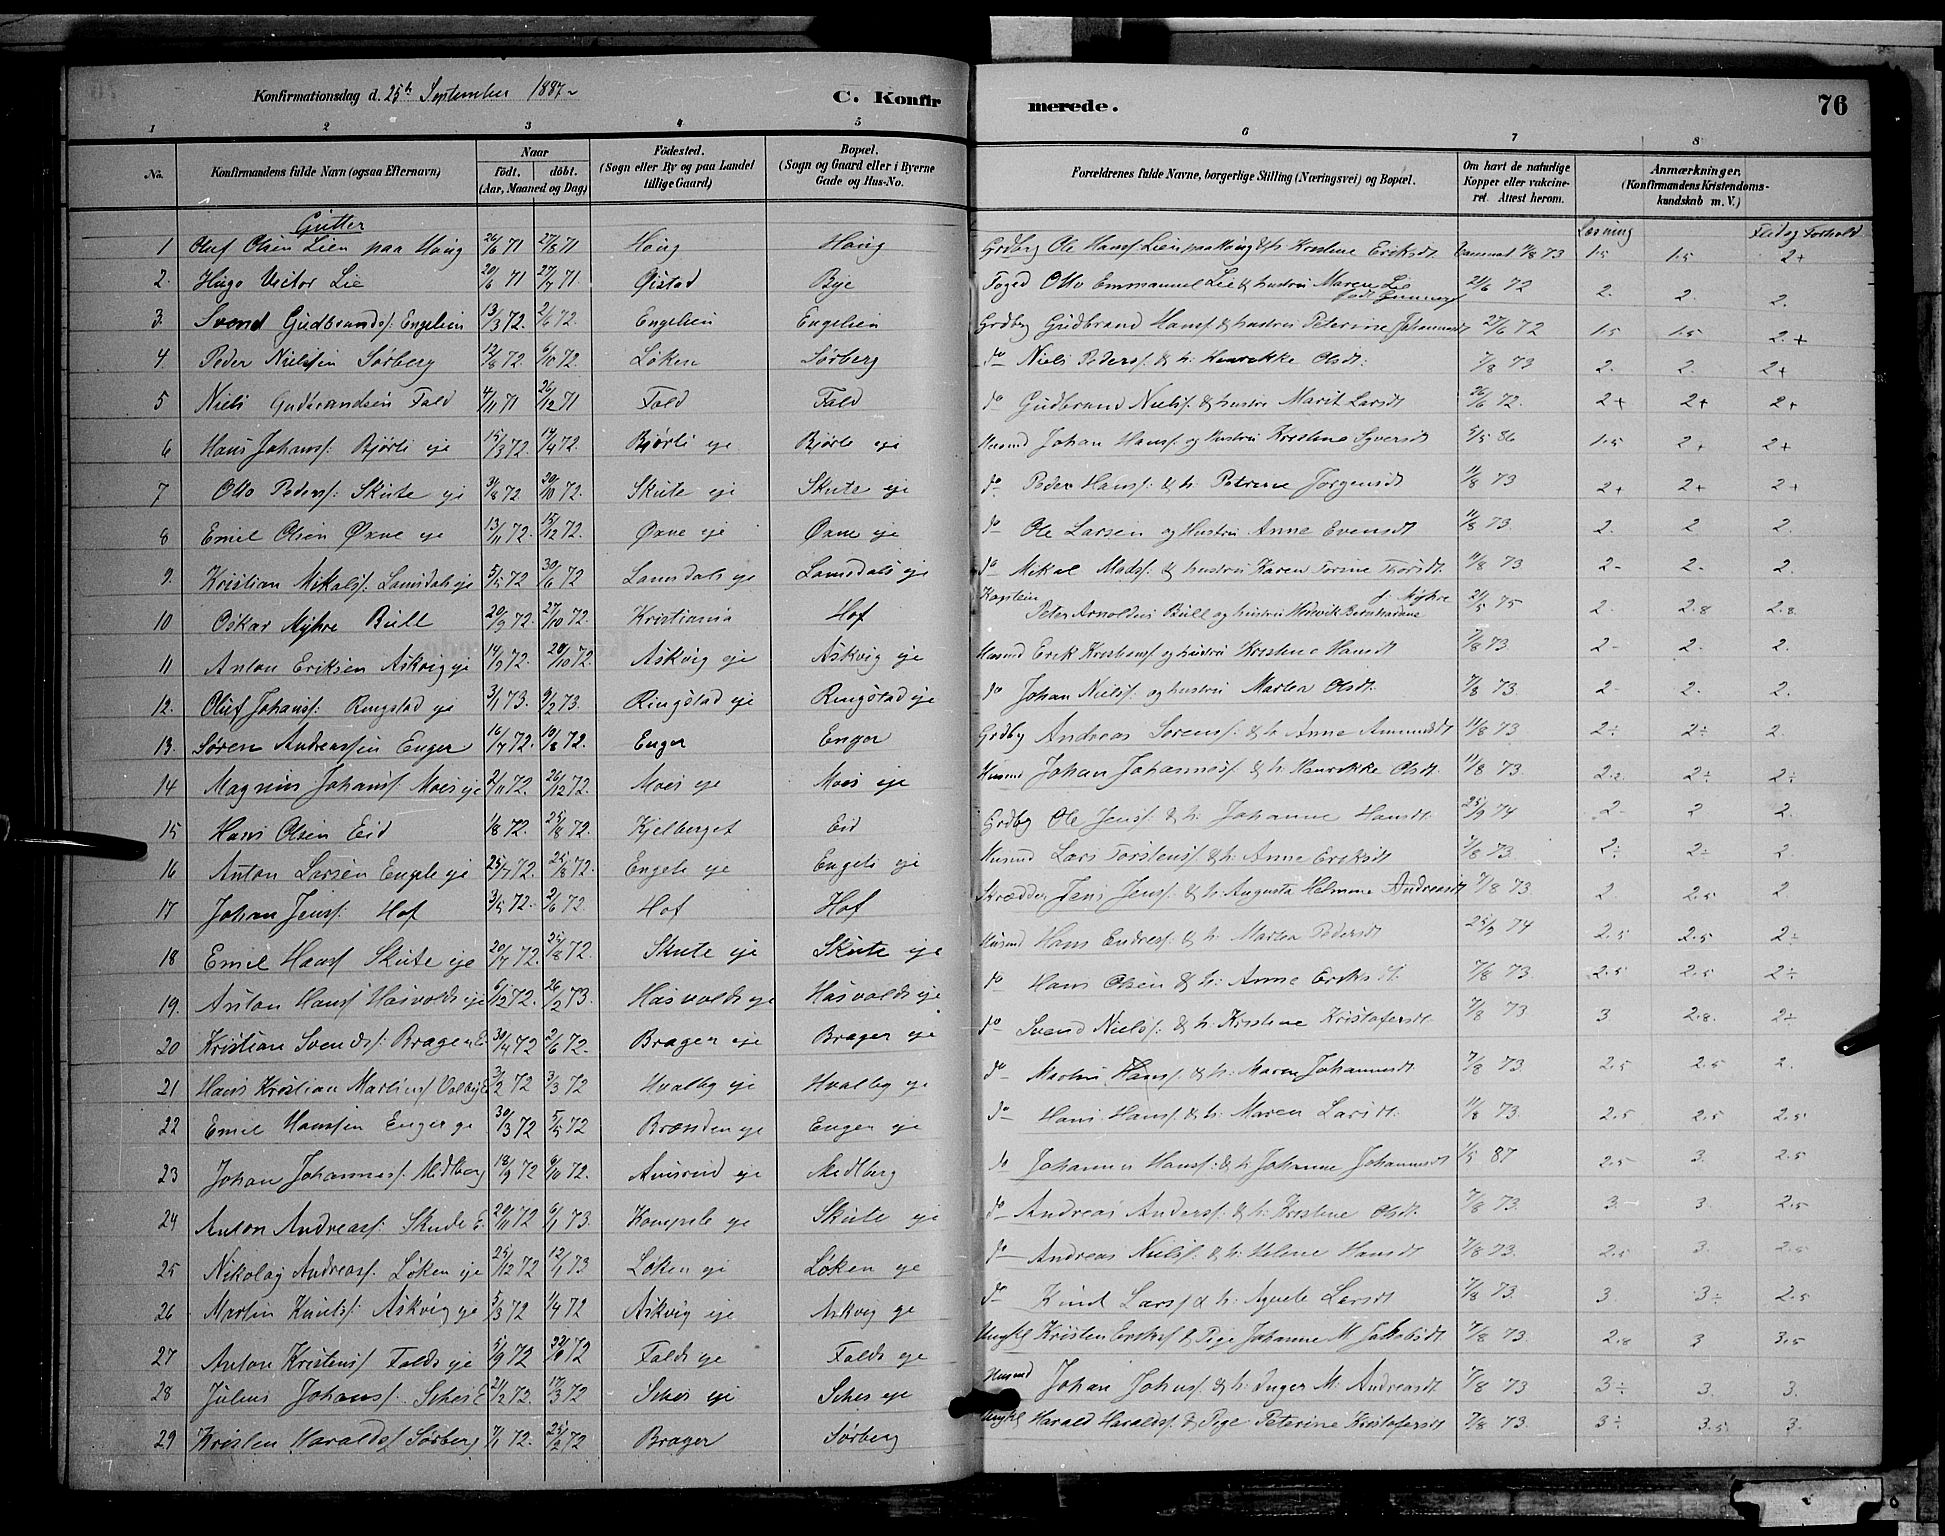 Konfirmationsdag d. 25de September 1887
C. Konfirmerede. 76
1 2 3 4 5 6 7 8
No. Konfirmandens fulde Navn (ogsaa Efternavn) Naar födt. döbt. (Aar, Maaned og Dag) Födested. (Sogn eller By og paa Landet tillige Gaard) Bopæl. (Sogn og Gaard eller i Byerne Gade og Hus-No. Forældrenes fulde Navne, borgerlige Stilling (Næringsvei) og Bopæl. Om havt de naturlige Kopper eller vakcineret. Attest herom. Anmærkninger. (Konfirmandens Kristendomskundskab m. V.)
Gutter Læsning Flid og Forhold
1 Oluf Olsen Lien paa Houg 26/6 71 27/8 71 Houg Houg Grdbrg Ole Hanss Lien paa Houg & h. Kristene Eriksdt 73 1.5 1.5 2+
2. Hugo Victor Lie 20/6 71 27/7 71. Øistad Bye Foged Otto Emmanuel Lie & hustru Maren Lie 21/6 72 2. 2. 2.
3. Svend Gudbrands. Engelien 13/3 72. 2/6 72. Engelien Engelien Grdbrg Gudbrand Hanss. & hustru Peterine Johannesdt 27/6 72 1.5 1.5 2.+
4 Peder Nielsen Sørberg 12/8 72. 6/10 72. Løken Sørberg do Niels Peders. & h. Henrikke Olsdt. 7/8 73 2. 2. 2+
5 Niels Gudbrandsen Fald 4/11 71 26/12 71 Fald Fald do Gudbrand Niels. & hustru Marit Larsdt 26/6 72. 2+ 2+ 2+
6 Hans Johans. Bjørli eje 15/3 72. 14/4 72. Bjørli eje Bjørli eje Husmd Johan Hans. og Hustru Kristine Syversdt 5/5 86 1.5 2+ 2+
7 Otto Peders. Skute eje 31/8 72 20/10 72. Skute eje Skute eje do Peder Hans. & h. Petrine Jørgensdt 11/8 73 2+ 2+ 2+
8 Emil Olsen Øxne eje 13/11 72. 15/12 72. Øxne eje Øxne eje do Ole Larsen og Hustru Anne Evensdt 11/8 73. 2. 2 2.
9. Kristian Mikals. Lamsdals eje 5/5 72 30/6 72 Lamsdals eje Lamsdals eje do Mikal Mads. & hustru Karen Torine Thorsdt. 11/8 73 2- 2. 2.
10 Oskar Myhre Bull 20/9 72. 27/10 72. Kristiania Hof Kaptein Peter Arnoldus Bull og hustru f. Myhre 21/5 75 2. 2.8 2.8
11 Anton Eriksen Askvig eje 14/9 72. 20/10 72. Askvig eje Askvig eje Husmd Erik Kristians. og hustru Kristine Hansdt 7/8 73. 2- 2. 2.
12. Oluf Johans. Ringstad eje 3/1 73. 9/2 73. Ringstad eje Ringstad eje do Johan Niels. og hustru Marten Olsdt. 7/8 73. 2- 2. 2.
13. Søren Andreassen Enger 16/7 72. 19/8 72. Enger Enger Grdbrg Andreas Sorens. & h. Anne Amundsdt 11/8 73 2÷ 2÷ 2.
14 Magnus Johans. Moes eje 2/11 72. 26/12 72. Moes eje Moes eje Husmd Johan Johannes. & h. Henrikke Olsdt. 11/8 73. 2.2. 2÷ 2÷
15 Hans Olsen Eid 1/8 72. 25/8 72. Kjelberget Eid Grdbrg Ole Jens. & h. Johanne Hansdt. 25/9 74 2- 2 2.
16 Anton Larsen Engele eje 25/7 72. 25/8 72. Engele eje Engeli eje Husmd Lars Torstens. & h. Anne Eriksdt 7/8 73. 2÷ 2÷ 2
17 Johan Jens. Hof 3/5 72. 2/6 72. Hof Hof Skrædder Jens Jens. & h. Augusta Helmine Andreasdt 7/8 73 2 2.5 2
18 Emil Hans. Skute eje 20/7 72. 25/8 72. Skute eje Skute eje Husmd Hans Endres. & h. Marten Pedersdt 25/9 74 2.5 2.5 2÷
19. Anton Hans. Hasvolds eje 6/12 72. 26/2 73. Hasvolds eje Hasvolds eje do Hans Olsen & h. Anne Eriksdt. 7/8 73. 2.5 2.5 2÷
20 Kristian Svends. Brager E 30/4 72 2/6 72. Brager eje Brager eje do Svend Niels. & h. Kristine Kristofersdt. 7/8 73 3 2.8. 2÷
21 Hans Kristian Martins. Valbye 3/2 72 3/3 72 Hvalby eje Hvalby eje do Martin Hans. & h. Maren Johannesdt 7/8 73. 2.5 2.5 2.
22 Emil Hanssen Enger eje 30/3 72 5/5 72 Brænden eje Enger eje do Hans Hans. & h. Maren Larsdt. 11/8 73. 2.5 2.5 2.5
23 Johan Johannes. Medberg 18/9 72 6/10 72. Amsrud eje Medberg do Johannes Hans. & h. Johanne Johannesdt 1/5 87 2.5 3. 2.5
24 Anton Andreas. Skute E 20/11 72 6/1 73. Kompele eje Skute eje do Andreas Anders. & h. Kristine Olsdt. 7/8 73. 3. 3. 2.5
25 Nikolay Andreas. Løken eje 25/12 72 12/1 73 Løken eje Løken eje do Andreas Niels. & h. Helene Hansdt 7/8 73. 2.5 3. 2.5
26 Martin Knuts. Askvig eje 5/3 72 1/4 72 Askvig eje Askvig eje do Knut Lars. & h. Agnete Larsdt 7/8 73. 3 3÷ 2.5
27 Anton Kristens. Falds eje 5/9 72 22/9 72 Falds eje Falds eje Ungkl Kristen Eriks. & Pige Johanne M. Jakobsdt 7/8 73. 2.8 3 3.5
28 Julius Johans. Sches E 21/2 72. 17/3 72 Sches eje Sches eje Husmd Johan Johns. & h. Inger M. Andreasdt. 7/8 73 3÷ 3. 3.
29 Kristen Haralds. Sørberg 7/1 72. 25/2 72 Brager Sørberg Ungkl Harald Haralds. & Pige Peterine Kristofersdt 7/8 73. 3÷ 3.5 3.